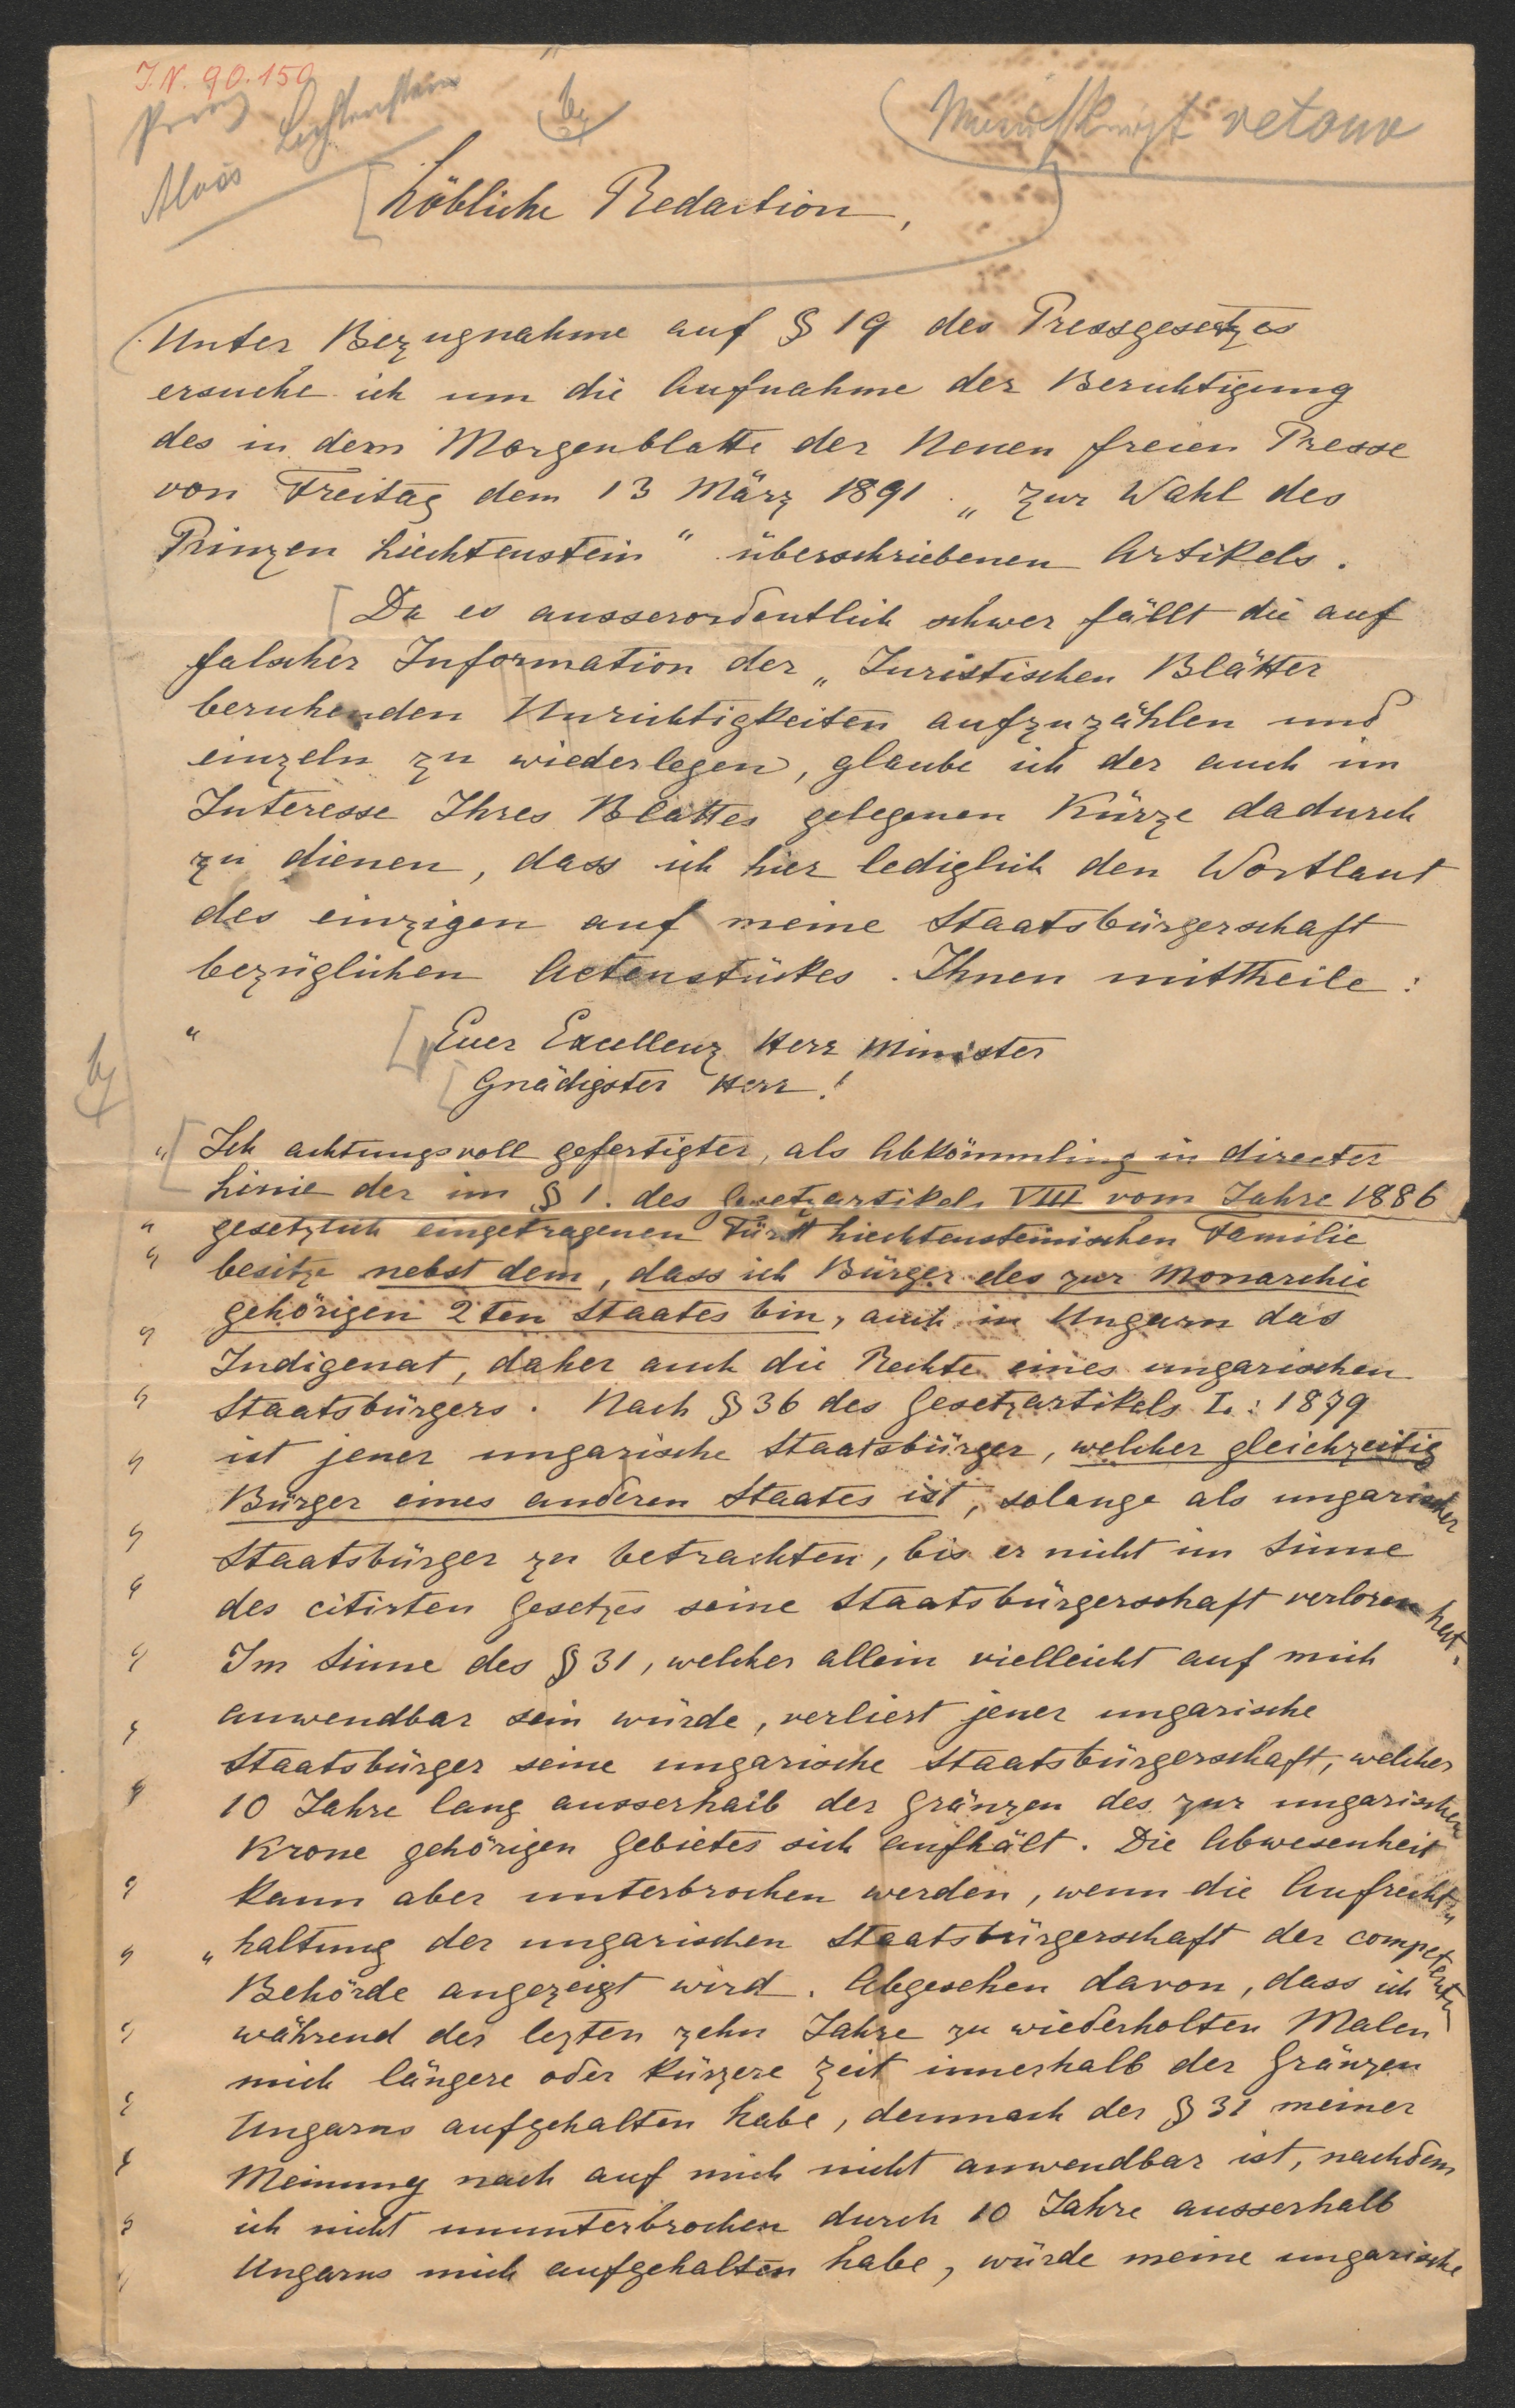 J.N. 90.150
Prinz Liechtenstein
Alois
Manuskript retour
Löbliche Redaction,
Unter Bezugnahme auf § 19 des Pressgesetzes
ersuche ich um die Aufnahme der Berichtigung
des in dem Morgenblatte der Neuen freien Presse
von Freitag dem 13 März 1891 „ Zur Wahl des
Prinzen Liechtenstein “ überschriebenen Artikels.
Da es ausserordentlich schwer fällt die auf
falscher Information der „ Juristischen Blätter
beruhenden Unrichtigkeiten aufzuzählen und
einzeln zu wiederlegen, glaube ich der auch im
Interesse Ihres Blattes gelegenen Kürze dadurch
zu dienen, dass ich hier lediglich den Wortlaut
des einzigen auf meine Staatsbürgerschaft
bezüglichen Actenstückes Ihnen mittheile :
“ Euer Excellenz Herr Minister
Gnädigster Herr !
„ Ich achtungsvoll gefertigter, als Abkömmling in directer
Linie der im § 1. des Gesetzartikels VIII vom Jahre 1886
“ gesetzlich eingetragenen Fürstl Liechtensteinischen Familie
“ besitze nebst dem, dass ich Bürger des zur Monarchie
gehörigen 2ten Staates bin, auch in Ungarn das
“ Indigenat, daher auch die Rechte eines ungarischen
“ Staatsbürgers. Nach § 36 des Gesetzartikels L : 1879
“ ist jener ungarische Staatsbürger, welcher gleichzeitig
Bürger eines anderen Staates ist, solange als ungarischer
“ Staatsbürger zu betrachten, bis er nicht im Sinne
“ des citirten Gesetzes seine Staatsbürgerschaft verloren hat.
“ Im Sinne des § 31, welcher allein vielleicht auf mich
“ anwendbar sein würde, verliert jener ungarische
Staatsbürger seine ungarische Staatsbürgerschaft, welcher
“ 10 Jahre lang ausserhalb der Gränzen des zur ungarischen
Krone gehörigen Gebietes sich aufhält. Die Abwesenheit
“ kann aber unterbrochen werden, wenn die Aufrecht„
“ „haltung der ungarischen Staatsbürgerschaft der competenten
Behörde angezeigt wird. Abgesehen davon, dass ich
“ während der lezten zehn Jahre zu wiederholten Malen
mich längere oder kürzere Zeit innerhalb der Gränzen
“ Ungarns aufgehalten habe, demnach der § 31 meiner
“ Meinung nach auf mich nicht anwendbar ist, nachdem
“ ich nicht ununterbrochen durch 10 Jahre ausserhalb
“ Ungarns mich aufgehalten habe, würde meine ungarische